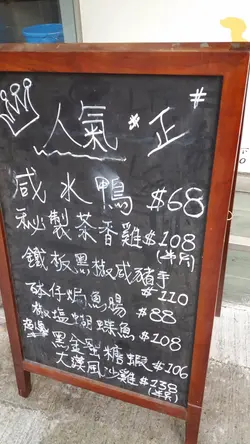 人氣 * 正 #
咸水鴨 $68
秘製茶香雞 $108
(半隻)
鐵板黑椒咸豬手
$110
砵仔焗魚腸 $88
椒鹽蝴蝶魚 $108
黑金翅糖蝦 $106
大漠風沙雞 $138
(半隻)